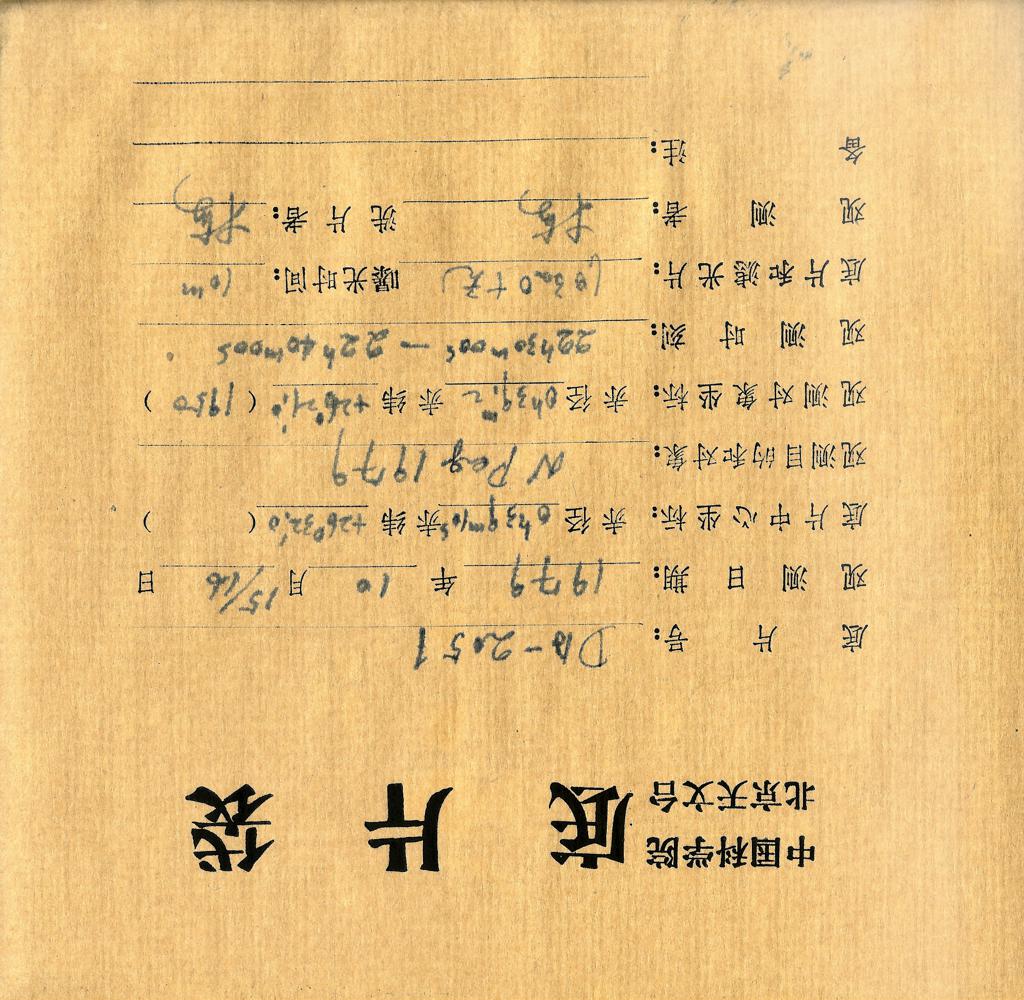 中国科学院
北京天文台
底 片 袋
底 片 号: DA-2051
观 测 日 期: 1979 年 10 月 15/16 日
底片中心坐标: 赤经 0h39m10s 赤纬 +26°32′.0 ( )
观测目的和对象: N Peg 1979
观测对象坐标: 赤经 0h39m.2 赤纬 +26°21′.0 ( 1950 )
观 测 时 刻: 22h30m00s — 22h40m00s
底片和滤光片: 曝光时间: 10m
观 测 者: 洗 片 者:
备 注: